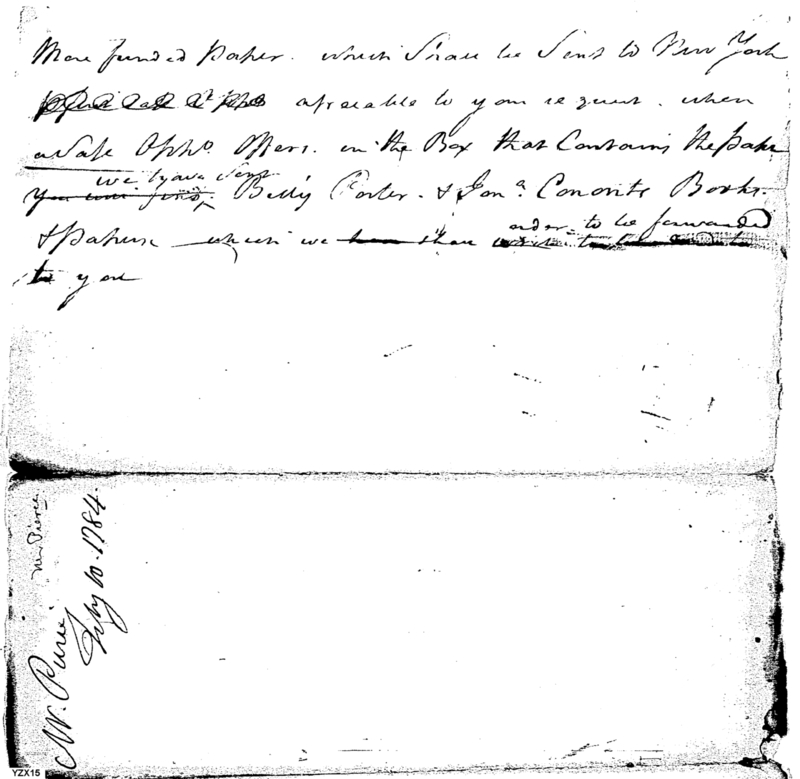 More funded paper. which Shall be Sent to New York
agreeable to your request. when
a Safe Oppo. Offers. in the Box that Contains the paper
we have Sent
You will find. Billy Porter. & Jona. Books.
& papers which we shall order to be forwarded
to you
Mr. Pierce
July 10. 1784.
Mr. Pierce
YZX15